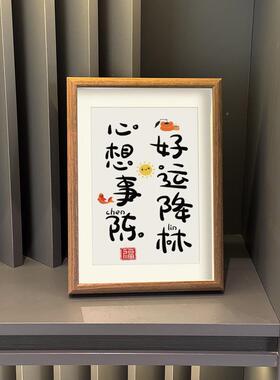 好运降林
lin
心想事陈
chen
福